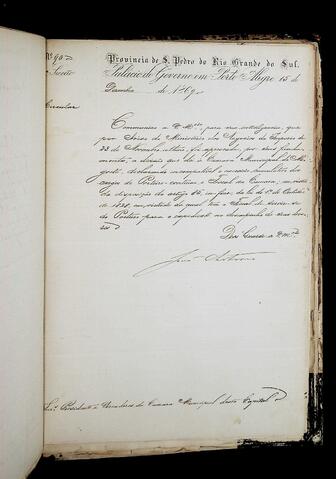 Nº 90
Provincia de S. Pedro do Rio Grande do Sul.
Palacio do Governo em Porto Alegre 15 de
Dezembro de 1869
Circular
Communico a V. Mcês para sua intelligencia, que
por Aviso do Ministerio dos Negocios do Imperio de
23 de Novembro ultimo, foi approvada, por seus funda-
mentos, a decisão que
declarando incompativel o accumular dos
cargos de Porteiro, continuo e Fiscal da Camara, em vista
da disposição do artigo 85, in fine, da lei do 1º de Outubro
de 1828, em virtude da qual tem o Fiscal de servir-se
do Porteiro, para o coadjuvar no desempenho de seus deve-
res.
Deos Guarde a V. Mcês
Snrs. Presidente e Vereadores da Camara Municipal desta Capital